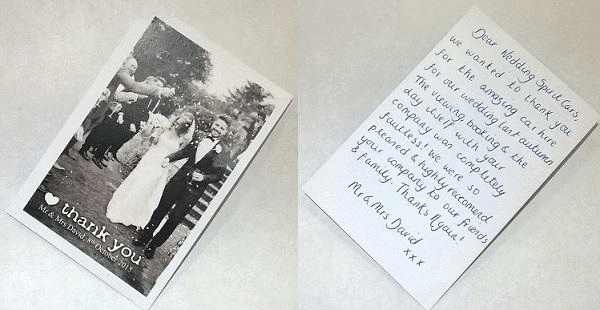 thank you
Mr & Mrs David, 8th October 2015
Dear Wedding Spirit Cars,
we wanted to thank you
for the amazing car hire
for our wedding last autumn
The viewing, booking & the
day itself with your
company was completely
faultless! We were so
pleaned & highly reccomend
your company to our friends
& family. Thanks Again!
Mr & Mrs David
xxx